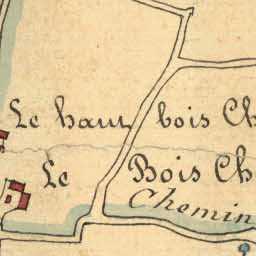 Le haut bois Ch
Le Bois Ch
Chemin